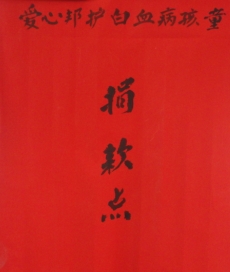 爱心邦护白血病孩童
捐款点